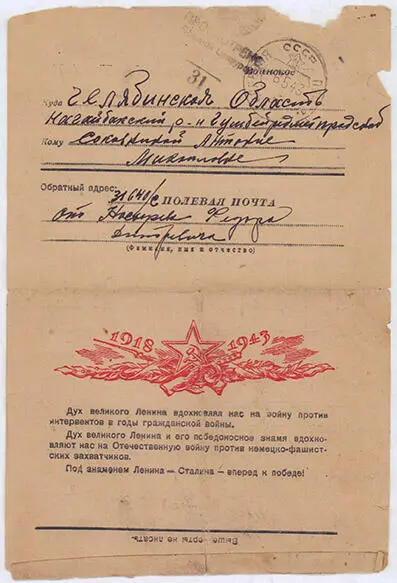 ПРОСМОТРЕНО
31
СССР
6 43
Воинское
Куда Челябинская Область
Нагайбакский р-н
Кому
Обратный адрес: 31640/с ПОЛЕВАЯ ПОЧТА
От Федора
Дмитревича
(Фамилия, имя и отчество)
1918 1943
Дух великого Ленина вдохновлял нас на войну против
интервентов в годы гражданской войны.
Дух великого Ленина и его победоносное знамя вдохно-
вляют нас на Отечественную войну против немецко-фашист-
ских захватчиков.
Под знаменем Ленина — Сталина — вперед к победе!
Выше черты не писать.